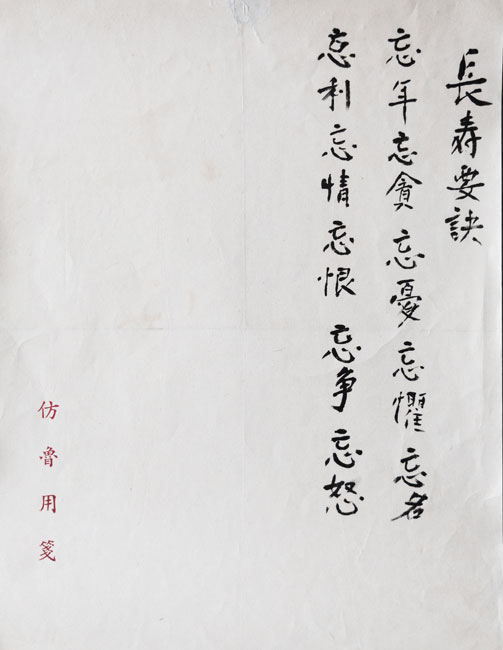 長寿要訣
忘年忘貪忘憂忘懼忘名
忘利忘情忘恨忘争忘怒
仿魯用箋